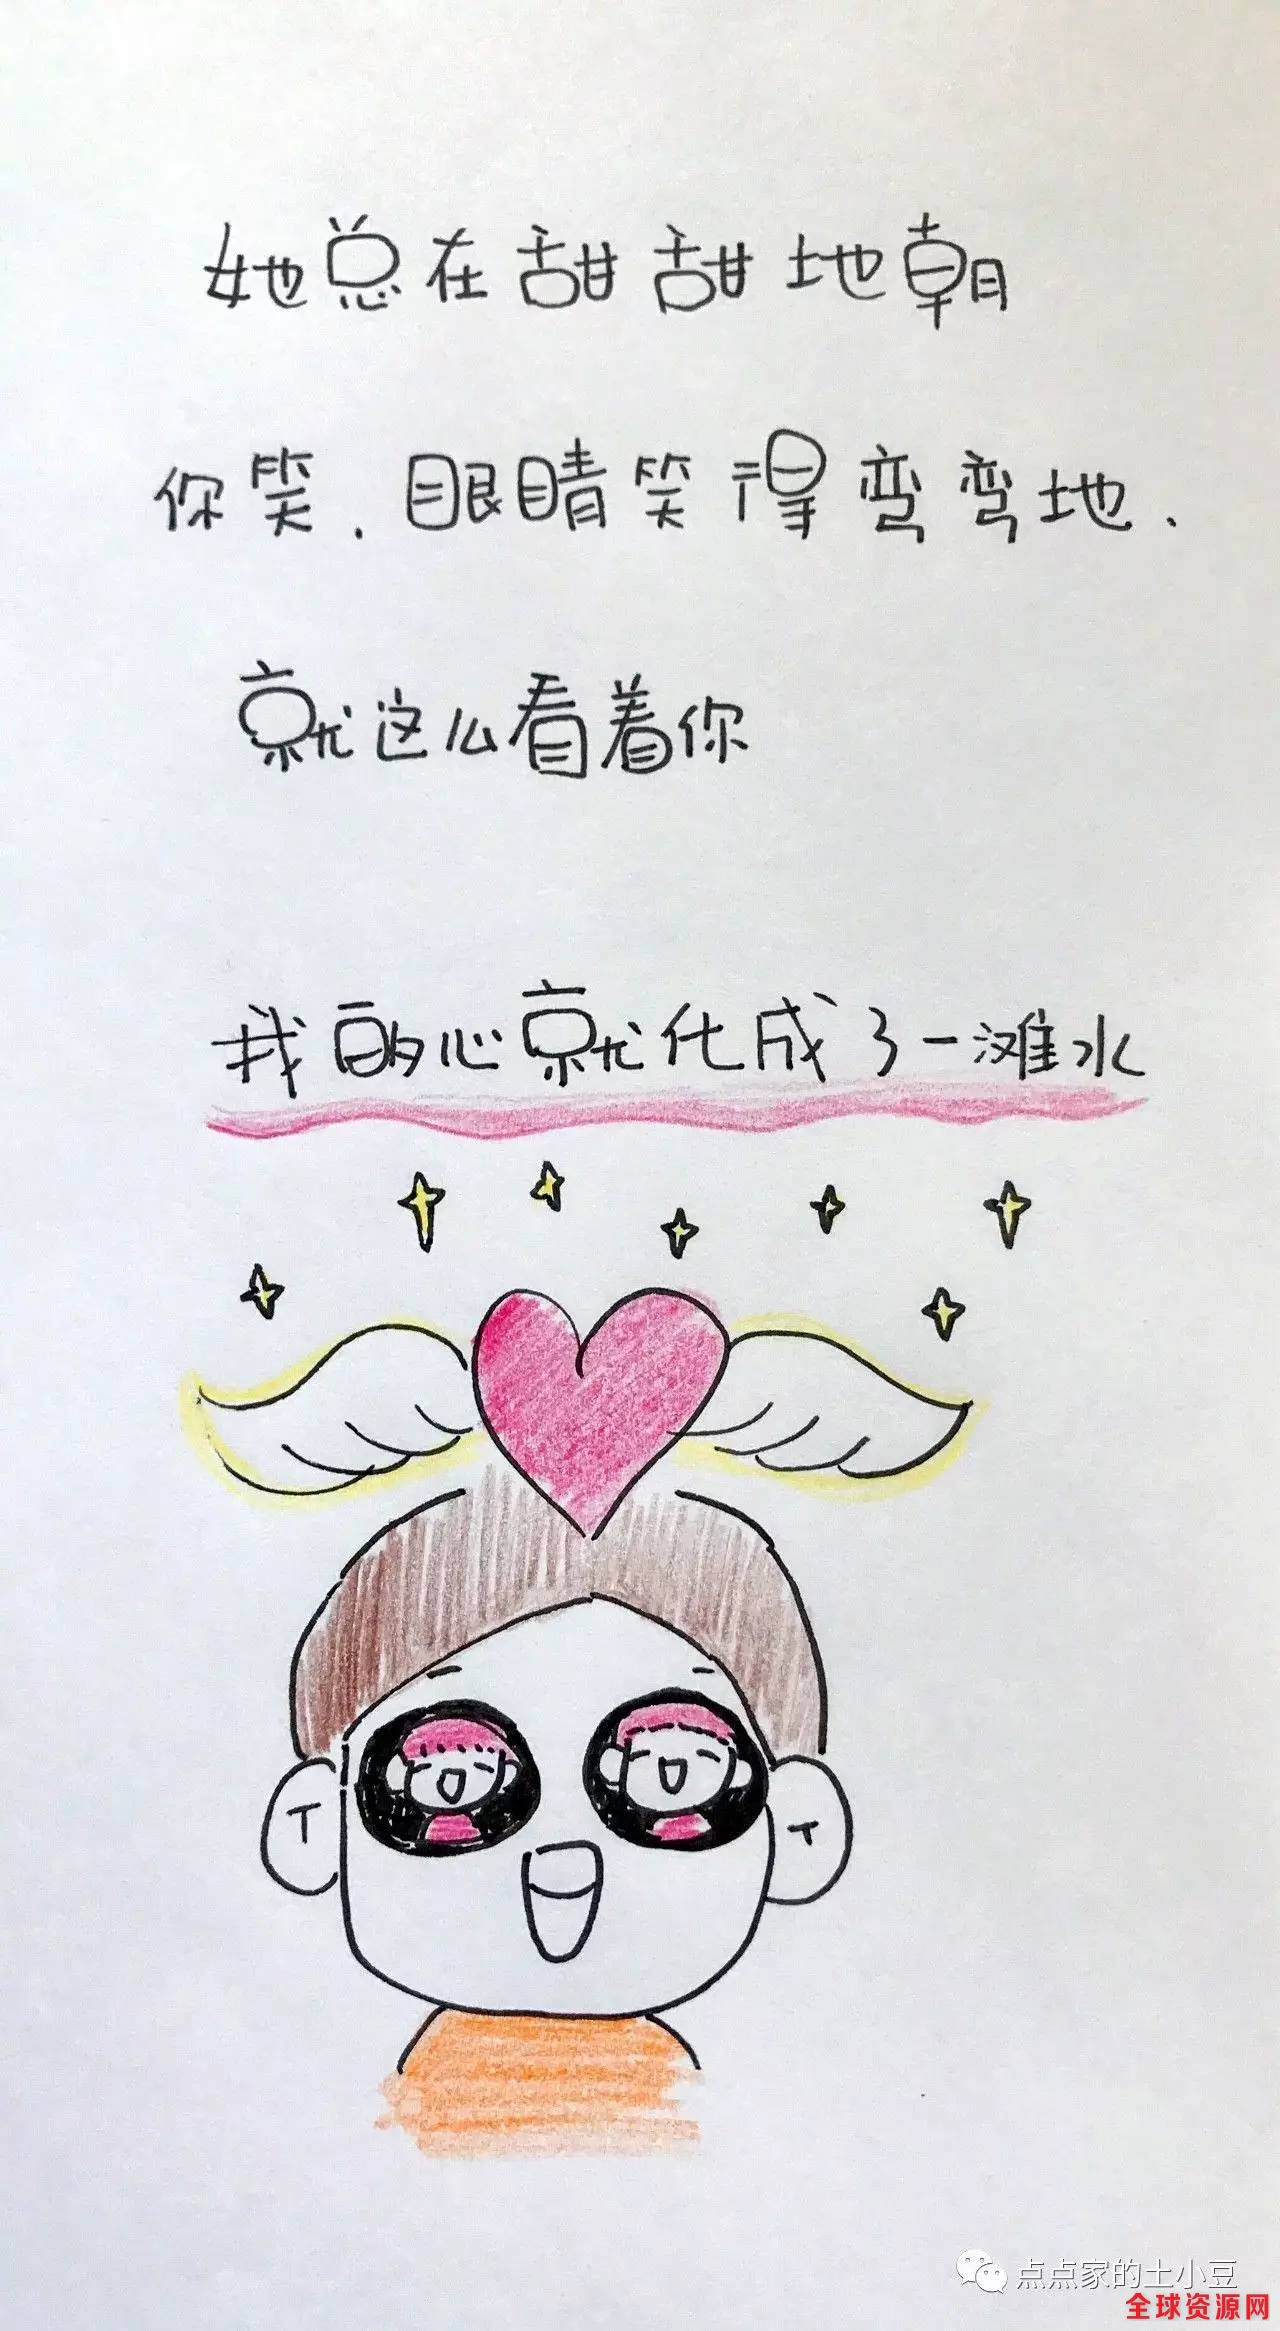 她总在甜甜地朝
你笑.眼睛笑得弯弯地.
就这么看着你
我的心就化成了一滩水
点点家的土小豆
全球资源网